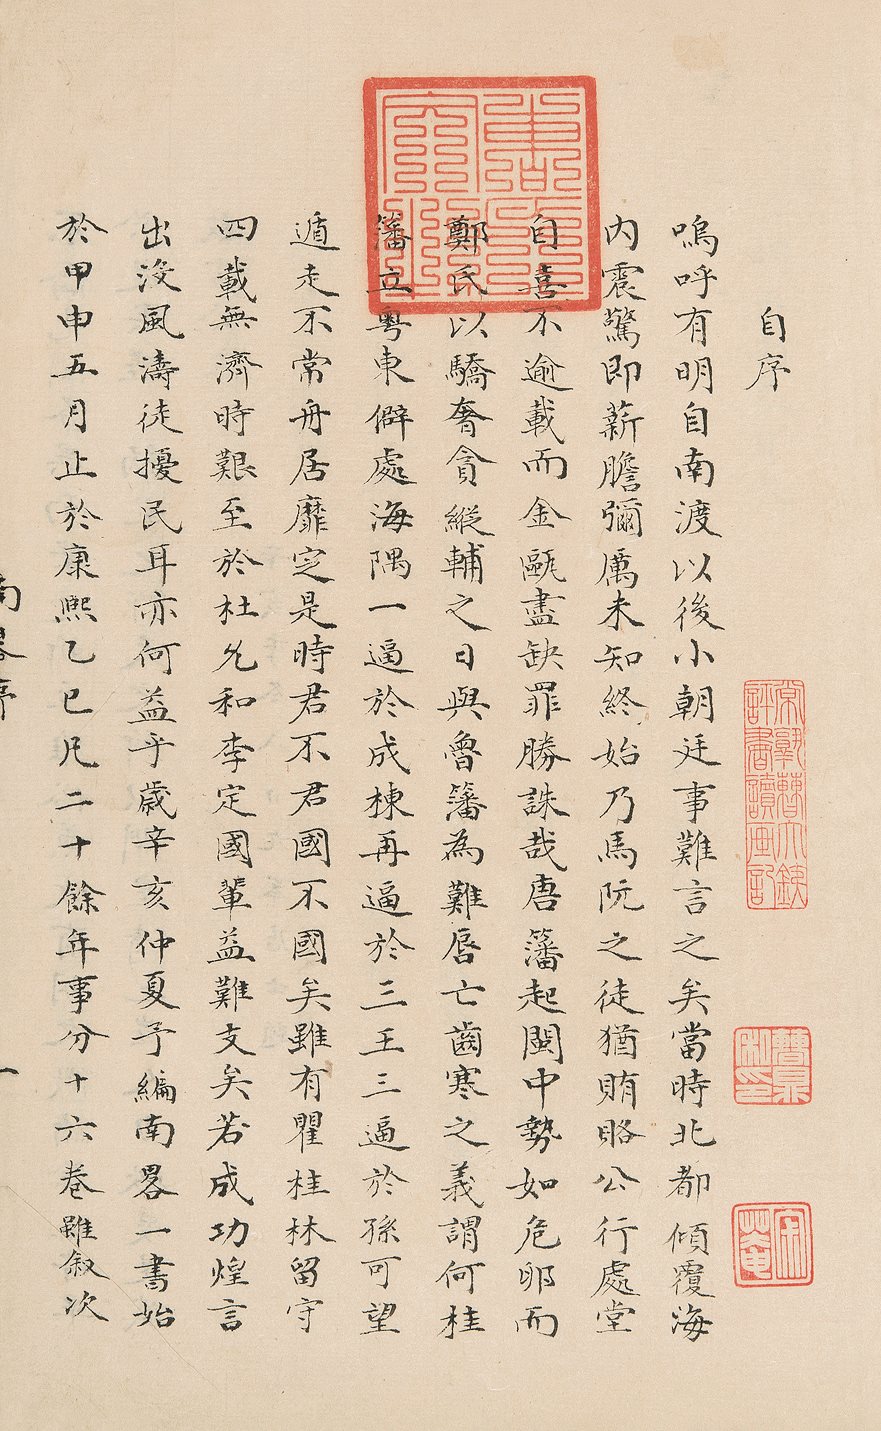 自序
嗚呼有明自南渡以後小朝廷事難言之矣當時北都傾覆海
内震驚即薪膽彌厲未知終始乃馬阮之徒猶賄賂公行處堂
自喜不逾載而金甌盡缺罪勝誅哉唐籓起閩中勢如危卵而
鄭氏以驕奢貪縱輔之日與魯籓為難唇亡齒寒之義謂何桂
籓立粵東僻處海隅一逼於成棟再逼於三王三逼於孫可望
遁走不常舟居靡定是時君不君國不國矣雖有瞿桂林留守
四載無濟時艱至於杜允和李定國輩益難支矣若成功煌言
出没風濤徒擾民耳亦何益乎歲辛亥仲夏予編南畧一書始
於甲申五月止於康熙乙巳凡二十餘年事分十六卷雖叙次
南畧序
一